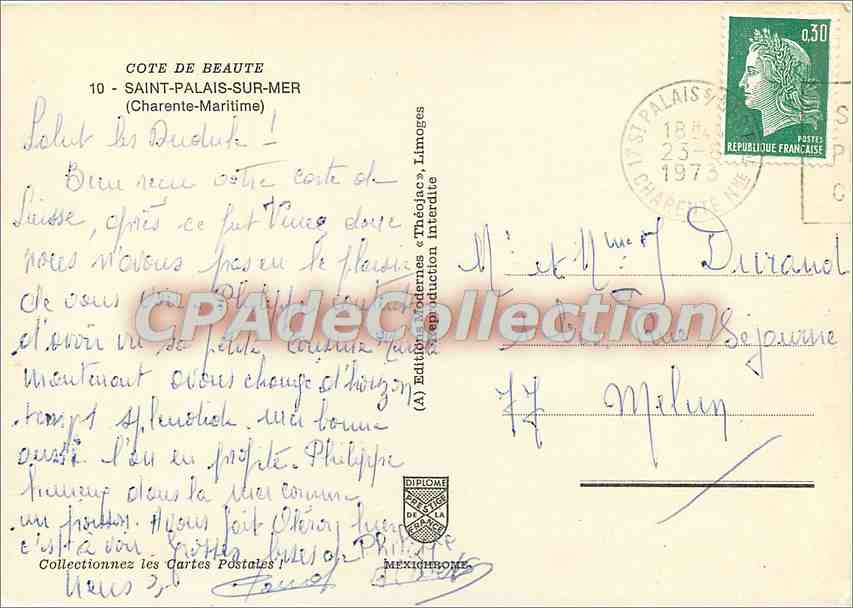 COTE DE BEAUTE
10 - SAINT-PALAIS-SUR-MER
(Charente-Maritime)
Salut les
Bien reçu votre carte de
Suisse, après ce fut
nous n'avons pas eu le plaisir
de vous Philippe
d'avoir vu sa petite cousine
maintenant avons changé d'horizon
temps splendide mer bonne
aussi l'on en profite. Philippe
dans la mer comme
un poisson. Avons fait Oléron hier
c'est à voir. Grosses bises de Philippe
Collectionnez les Cartes Postales !
Nous 3,
(A) Editions Modernes «Théojac», Limoges
Reproduction interdite
DIPLOME
PRESTIGE
DE LA
FRANCE
MEXICHROME
0,30
POSTES
REPUBLIQUE FRANÇAISE
17 ST PALAIS S/
18H
23-8
1973
CHARENTE MME
Mr et Mme J Durand
Rue Séjourné
77 Melun
CPAdeCollection